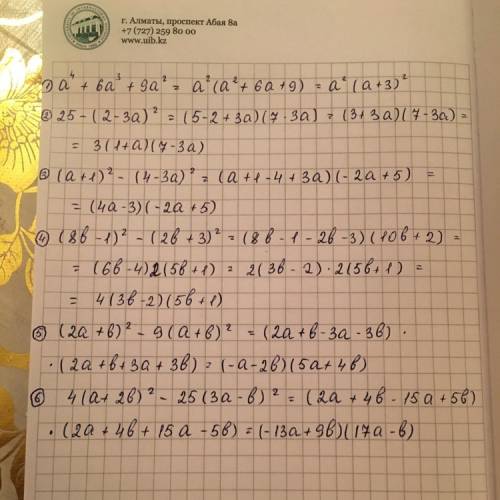 г. Алматы, проспект Абая 8а
+7 (727) 259 80 00
www.uib.kz
1) a⁴ + 6a³ + 9a² = a²(a² + 6a + 9) = a²(a+3)²
2) 25 - (2-3a)² = (5-2+3a)(7-3a) = (3+3a)(7-3a) =
= 3(1+a)(7-3a)
3) (a+1)² - (4-3a)² = (a+1-4+3a)(-2a+5) =
= (4a-3)(-2a+5)
4) (8b-1)² - (2b+3)² = (8b-1-2b-3)(10b+2) =
= (6b-4)2(5b+1) = 2(3b-2)·2(5b+1) =
= 4(3b-2)(5b+1)
5) (2a+b)² - 9(a+b)² = (2a+b-3a-3b)·
·(2a+b+3a+3b) = (-a-2b)(5a+4b)
6) 4(a+2b)² - 25(3a-b)² = (2a+4b-15a+5b)
·(2a+4b+15a-5b) = (-13a+9b)(17a-b)